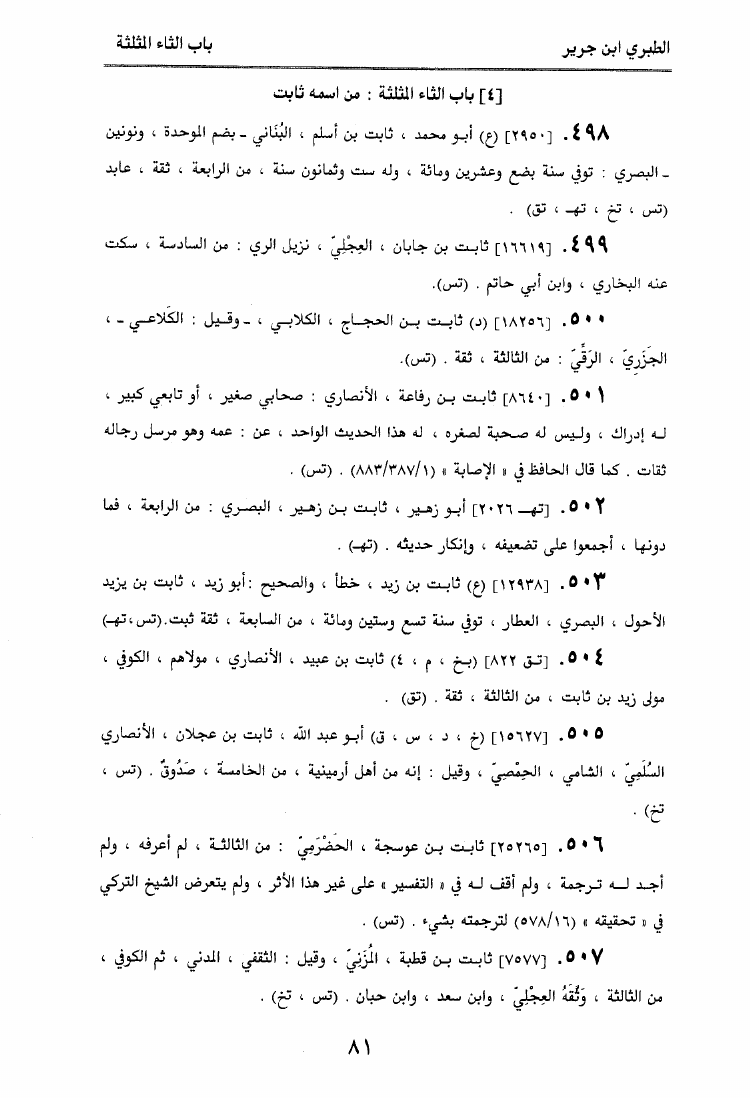 الطبري ابن جرير
باب الثاء المثلثة
[٤] باب الثاء المثلثة : من اسمه ثابت
٤٩٨. [٢٩٥٠] (ع) أبو محمد ، ثابت بن أسلم ، البُنَاني ـ بضم الموحدة ، ونونين
ـ البصري : توفي سنة بضع وعشرين ومائة ، وله ست وثمانون سنة ، من الرابعة ، ثقة ، عابد
(تس ، تخ ، تهـ ، تق) .
٤٩٩. [١٦٦١٩] ثابت بن جابان ، العِجْلِيّ ، نزيل الري : من السادسة ، سكت
عنه البخاري ، وابن أبي حاتم . (تس).
٥٠٠. [١٨٢٥٦] (د) ثابت بن الحجاج ، الكلابي ، ـ وقيل : الكَلاعي ـ ،
الجَزَرِيّ ، الرَقِّيّ : من الثالثة ، ثقة . (تس).
٥٠١. [٨٦٤٠] ثابت بن رفاعة ، الأنصاري : صحابي صغير ، أو تابعي كبير ،
له إدراك ، وليس له صحبة لصغره ، له هذا الحديث الواحد ، عن : عمه وهو مرسل رجاله
ثقات . كما قال الحافظ في « الإصابة » (٨٨٣/٣٨٧/١) . (تس) .
٥٠٢. [تهـ ٢٠٢٦] أبو زهير ، ثابت بن زهير ، البصري : من الرابعة ، فما
دونها ، أجمعوا على تضعيفه ، وإنكار حديثه . (تهـ) .
٥٠٣. [١٢٩٣٨] (ع) ثابت بن زيد ، خطأ ، والصحيح :أبو زيد ، ثابت بن يزيد
الأحول ، البصري ، العطار ، توفي سنة تسع وستين ومائة ، من السابعة ، ثقة ثبت.(تس،تهـ)
٥٠٤. [تق ٨٢٢] (بخ ، م ، ٤) ثابت بن عبيد ، الأنصاري ، مولاهم ، الكوفي ،
مولى زيد بن ثابت ، من الثالثة ، ثقة . (تق) .
٥٠٥. [١٥٦٢٧] (خ ، د ، س ، ق) أبو عبد الله ، ثابت بن عجلان ، الأنصاري
السُلَمِيّ ، الشامي ، الحِمْصِيّ ، وقيل : إنه من أهل أرمينية ، من الخامسة ، صَدُوقٌ . (تس ،
تخ) .
٥٠٦. [٢٥٢٦٥] ثابت بن عوسجة ، الحَضْرَمِيّ : من الثالثة ، لم أعرفه ، ولم
أجد له ترجمة ، ولم أقف له في « التفسير » على غير هذا الأثر ، ولم يتعرض الشيخ التركي
في « تحقيقه » (٥٧٨/١٦) لترجمته بشيء . (تس) .
٥٠٧. [٧٥٧٧] ثابت بن قطبة ، المُزَنِيّ ، وقيل : الثقفي ، المدني ، ثم الكوفي ،
من الثالثة ، وَثَّقَهُ العِجْلِيّ ، وابن سعد ، وابن حبان . (تس ، تخ) .
٨١